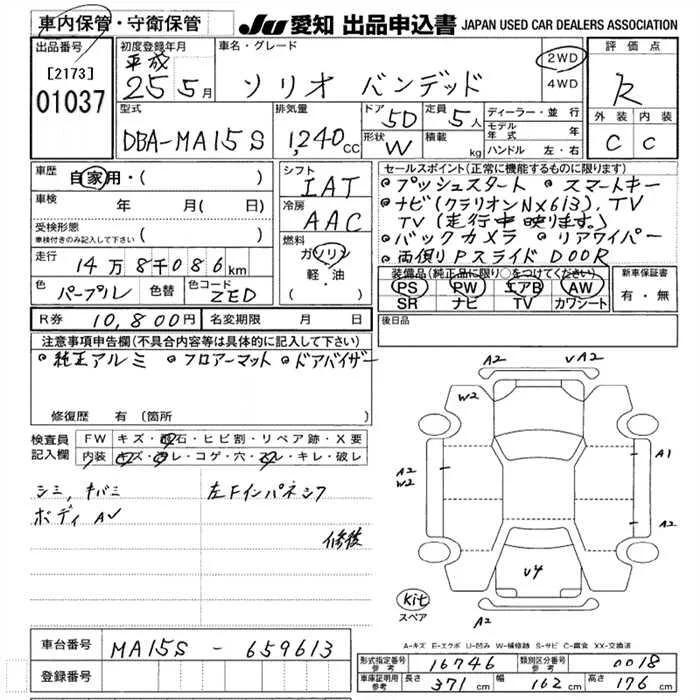 車内保管・守衛保管
JU 愛知 出品申込書 JAPAN USED CAR DEALERS ASSOCIATION
出品番号
[2173]
01037
初度登録年月
平成
25 5月
車名・グレード
ソリオ バンデッド
2WD
4WD
評価点
R
外装 内装
C C
型式
DBA-MA15S
排気量
1,240cc
ドア 5D
定員 5人
形状 W
積載 kg
ディーラー・並行
モデル年式 年
ハンドル 左・右
車歴
自家用・( )
車検
年 月(日)
受検形態
車検付きのみ記入して下さい ( )
走行
14万8千086km
色 パープル 色替 色コード ZED
シフト
IAT
冷房
AAC
燃料
ガソリン
軽・油
セールスポイント(正常に機能するものに限ります)
・プッシュスタート ・スマートキー
・ナビ(クラリオンNX613), TV
TV(走行中映ります。)
・バックカメラ ・リアワイパー
・両側PスライドDOOR
装備品(純正品に限り○をつけてください)
PS PW エアB AW
SR ナビ TV カワシート
新車保証書
有・無
R券 10,800円 名変期限 月 日
後日品
注意事項申告欄(不具合内容等は具体的に記入して下さい)
・純正アルミ ・フロアーマット ・ドアバイザー
修復歴 有(箇所
検査員記入欄
FW キズ・飛石・ヒビ割・リペア跡・X要
内装 キズ・汚レ・コゲ・穴・スレ・キレ・破レ
シミ, キバミ 左Fインパネシワ
ボディAv
修復
A2 vA2
W2
A2
W2
A1
A2
v4
A2
Kit
スペア
A-キズ E-エクボ U-凹み W-補修跡 S-サビ C-腐食 XX-交換済
車台番号 MA15S - 659613
登録番号
形式指定番号 参考 16746 類別区分番号 参考 0018
車庫証明用 参考 長さ 371cm 幅 162cm 高さ 176cm